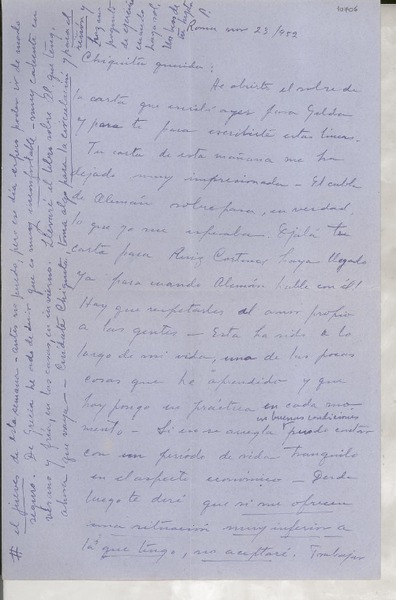 10406
Roma nov 23/952
Chiquita querida:
He abierto el sobre de
la carta que envié ayer para Galda
y para ti para escribirte estas líneas.
Tu carta de esta mañana me ha
dejado muy impresionada — El cable
de Alemán sobrepasa, en verdad,
lo que yo me esperaba. Ojalá tu
carta para Ruiz Cortines haya llegado
ya para cuando Alemán hable con él!
Hay que respetarles el amor propio
a las gentes — Esta ha sido a lo
largo de mi vida, una de las pocas
cosas que he aprendido y que
hoy pongo en práctica en cada mo-
en buenas condiciones
mento. — Si esto se arregla puedo contar
con un período de vida tranquilo
en el aspecto económico — Desde
luego te diré que si me ofrecen
una situación muy inferior a
la que tengo, no aceptaré. Trabajar
# el jueves de esta semana — antes no puedo; pero ese día espero poder ir de modo
seguro. De Grecia he oído decir que es muy inconfortable — muy caliente en
verano y frío, en las casas, en invierno. Llevaré el libro sobre El que teng.
ahora que vaya — Cuídate Chiquita, toma algo para la circulación y para el
riñón y
haz un
poquito
de ejercicio
cuando
haya sol.
P.